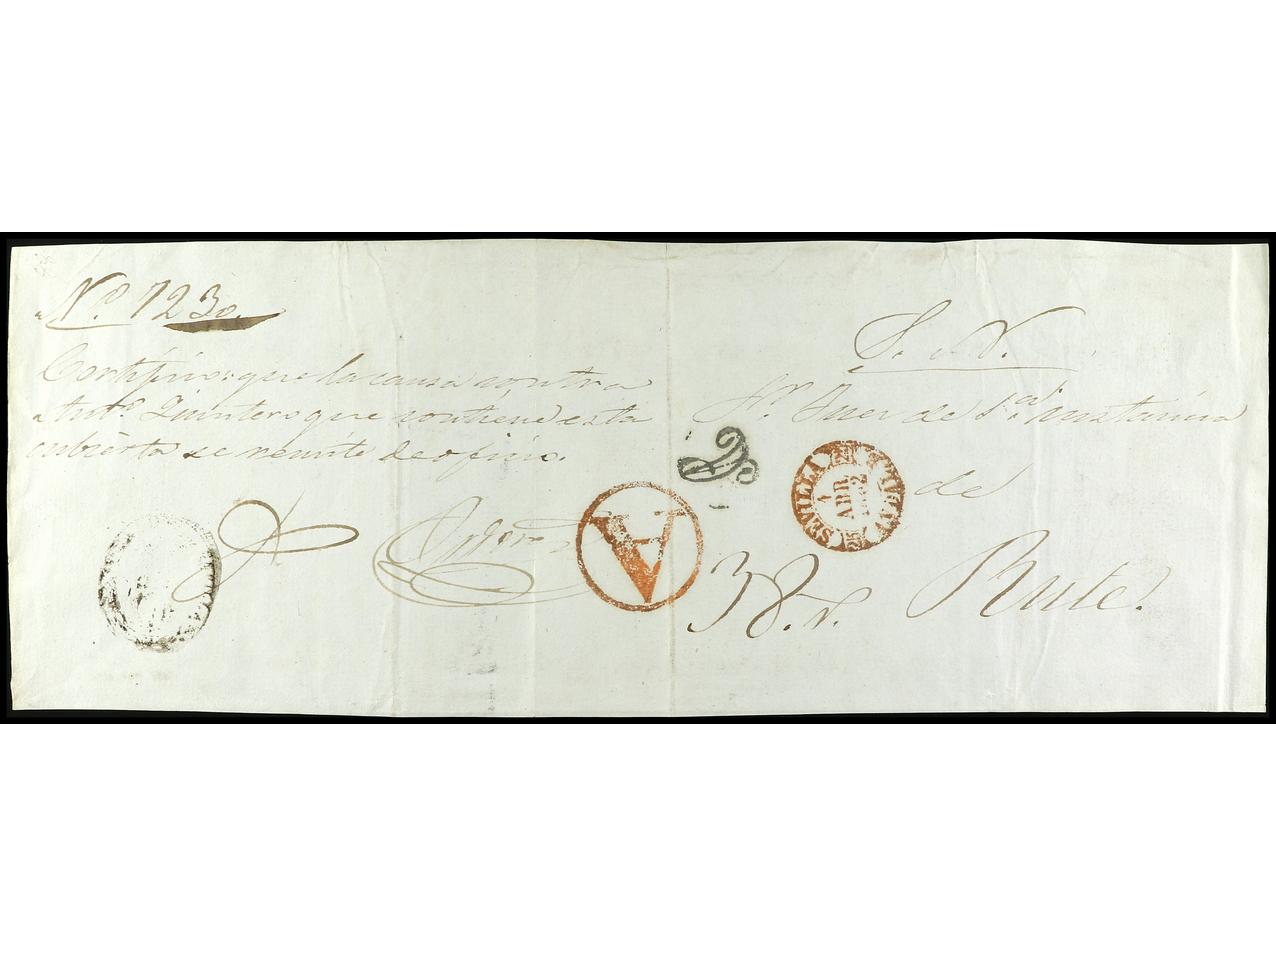 Nº. 7230.
Certifico: que la causa contra
Antº. Quintero que contiene esta
cubierta se remite de oficio.
A
S. N.
Sr. Juez de 1ª. instancia
de
Rute.
38. r.
SEVILLA
1
ABR.
1842